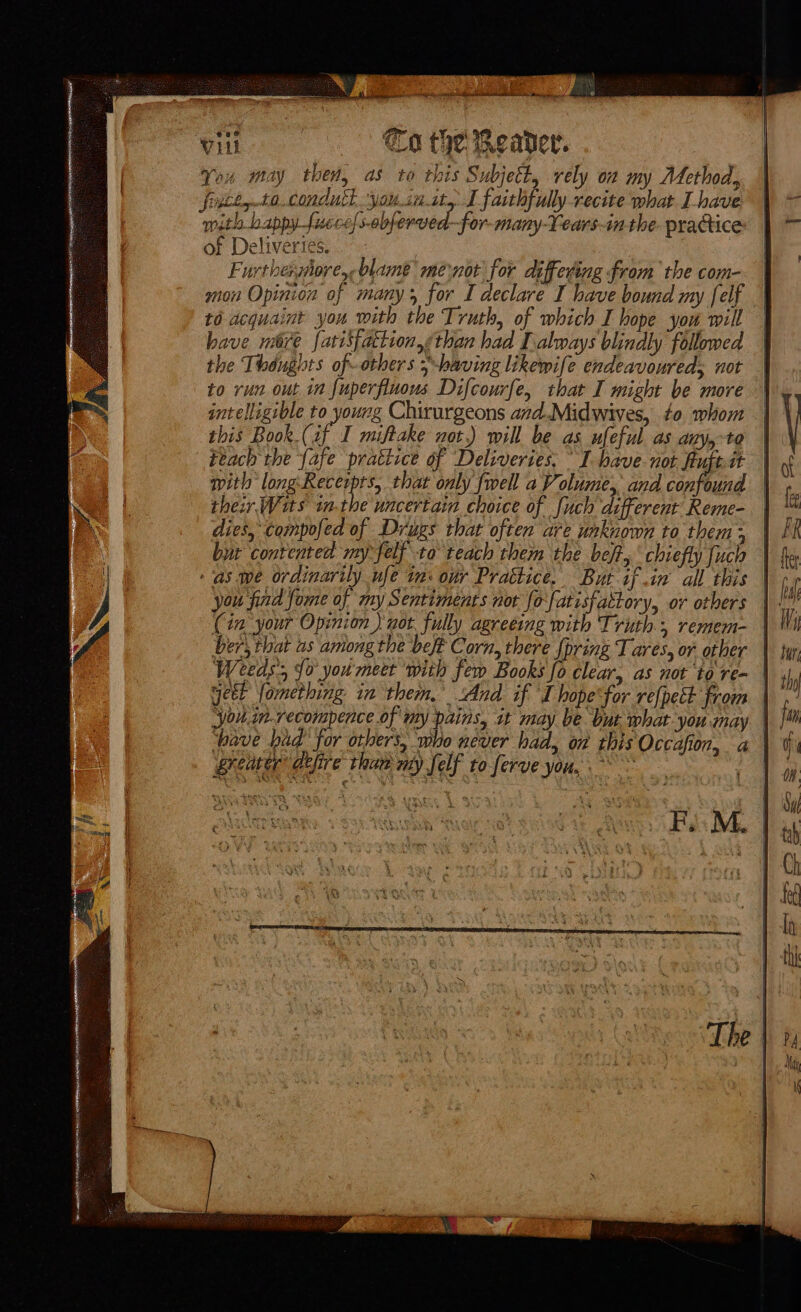 viii To the Reader.
You may then, as to this Subject, rely on my Method,
since, to conduct you in it, I faithfully recite what I have
with happy success observed for many Years in the practice
of Deliveries.
Furthermore, blame me not for differing from the com-
mon Opinion of many; for I declare I have bound my self
to acquaint you with the Truth, of which I hope you will
have more satisfaction, than had I always blindly followed
the Thoughts of others; having likewise endeavoured, not
to run out in superfluous Discourse, that I might be more
intelligible to young Chirurgeons and Midwives, to whom
this Book (if I mistake not) will be as useful as any, to
teach the safe practice of Deliveries. I have not stuft it
with long Receipts, that only swell a Volume, and confound
their Wits in the uncertain choice of such different Reme-
dies, composed of Drugs that often are unknown to them;
but contented my self to teach them the best, chiefly such
as we ordinarily use in our Practice. But if in all this
you find some of my Sentiments not so satisfactory, or others
(in your Opinion) not fully agreeing with Truth; remem-
ber, that as among the best Corn, there spring Tares, or other
Weeds; so you meet with few Books so clear, as not to re-
ject something in them. And if I hope for respect from
you in recompence of my pains, it may be but what you may
have had for others, who never had, on this Occasion, a
greater desire than my self to serve you.
F. M.
The